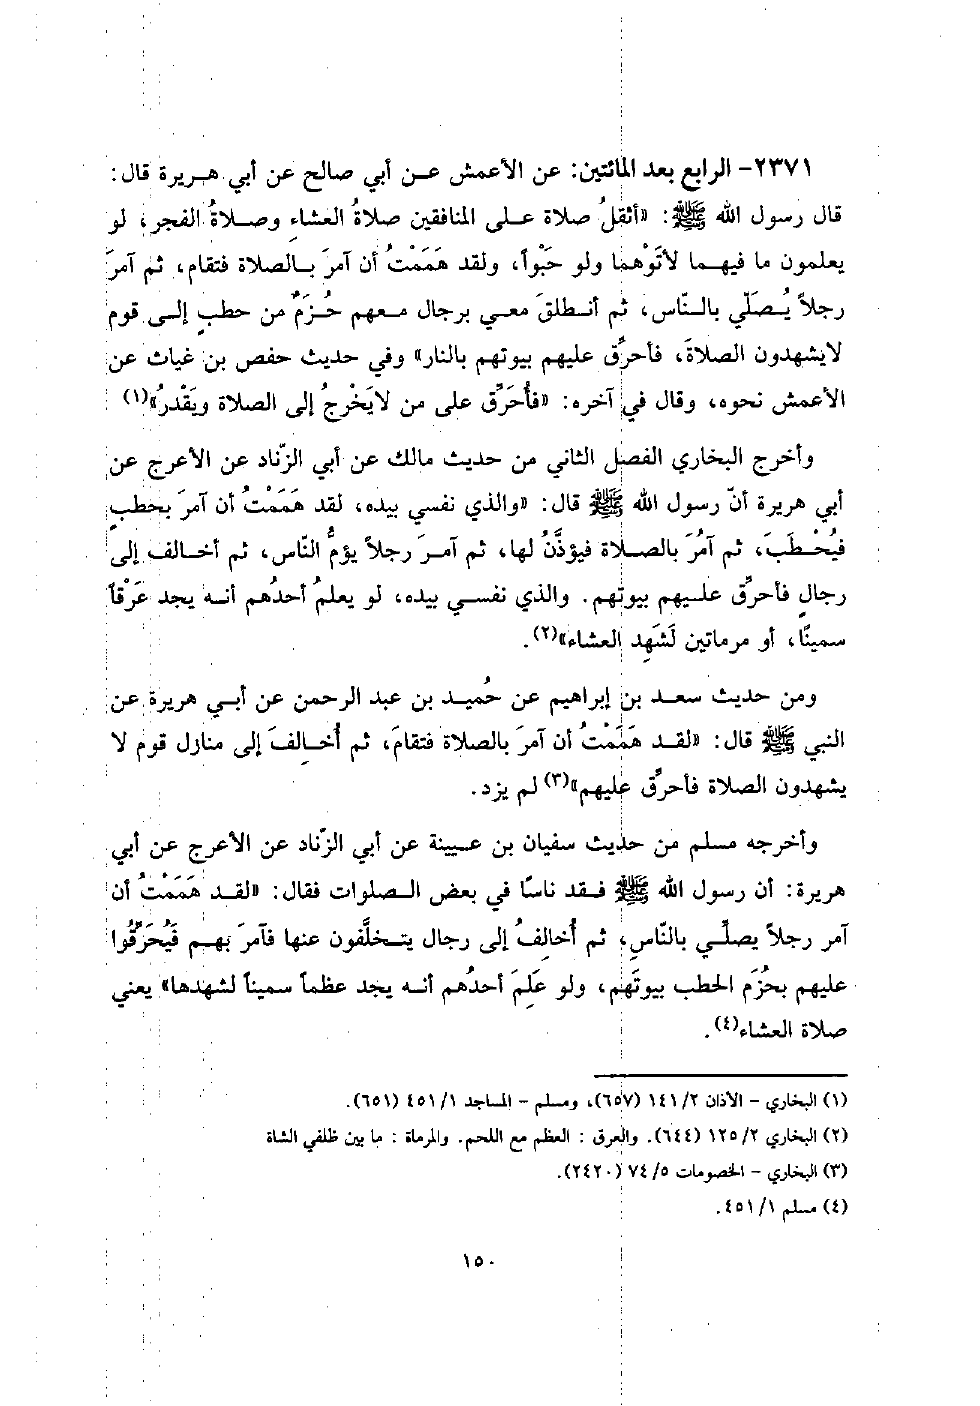 ٢٣٧١- الرابع بعد المائتين: عن الأعمش عن أبي صالح عن أبي هريرة قال:
قال رسول الله ﷺ: «أثقلُ صلاة على المنافقين صلاةُ العشاءِ وصلاةُ الفجر، لو
يعلمون ما فيهما لأتَوْهما ولو حَبْواً، ولقد هَمَمْتُ أن آمرَ بالصلاة فتقام، ثم آمرَ
رجلاً يُصلّي بالنّاس، ثم أنطلقَ معي برجال معهم حُزَمٌ من حطبٍ إلى قوم
لايشهدون الصلاةَ، فأحرِّق عليهم بيوتهم بالنار» وفي حديث حفص بن غياث عن
الأعمش نحوه، وقال في آخره: «فأُحَرِّق على من لايَخْرجُ إلى الصلاة ويَقْدرُ»(١)
وأخرج البخاري الفصل الثاني من حديث مالك عن أبي الزّناد عن الأعرج عن
أبي هريرة أنّ رسول الله ﷺ قال: «والذي نفسي بيده، لقد هَمَمْتُ أن آمرَ بحطبٍ
فيُحْطَبَ، ثم آمُرَ بالصلاة فيؤذَّنُ لها، ثم آمرَ رجلاً يؤمُّ النّاس، ثم أخالف إلى
رجالٍ فأحرِّق عليهم بيوتهم. والذي نفسي بيده، لو يعلمُ أحدُهم أنه يجد عَرْقاً
سمينًا، أو مرماتين لَشَهِد العشاء»(٢).
ومن حديث سعد بن إبراهيم عن حُميد بن عبد الرحمن عن أبي هريرة عن
النبي ﷺ قال: «لقد هَمَمْتُ أن آمرَ بالصلاة فتقامَ، ثم أُخالِفَ إلى منازل قوم لا
يشهدون الصلاة فأحرِّق عليهم»(٣) لم يزد.
وأخرجه مسلم من حديث سفيان بن عيينة عن أبي الزّناد عن الأعرج عن أبي
هريرة: أن رسول الله ﷺ فقد ناسًا في بعض الصلوات فقال: «لقد هَمَمْتُ أن
آمر رجلاً يصلّي بالنّاسِ، ثم أُخالِفُ إلى رجال يتخلَّفون عنها فآمرَ بهم فَيُحَرِّقُوا
عليهم بحُزَم الحطب بيوتَهم، ولو عَلِمَ أحدُهم أنه يجد عظماً سميناً لشهدها» يعني
صلاة العشاء(٤).
(١) البخاري - الأذان ٢/ ١٤١ (٦٥٧)، ومسلم - المساجد ١/ ٤٥١ (٦٥١).
(٢) البخاري ٢/ ١٢٥ (٦٤٤). والعرق : العظم مع اللحم. والمرماة : ما بين ظلفي الشاة
(٣) البخاري - الخصومات ٥/ ٧٤ (٢٤٢٠).
(٤) مسلم ١/ ٤٥١.
١٥٠